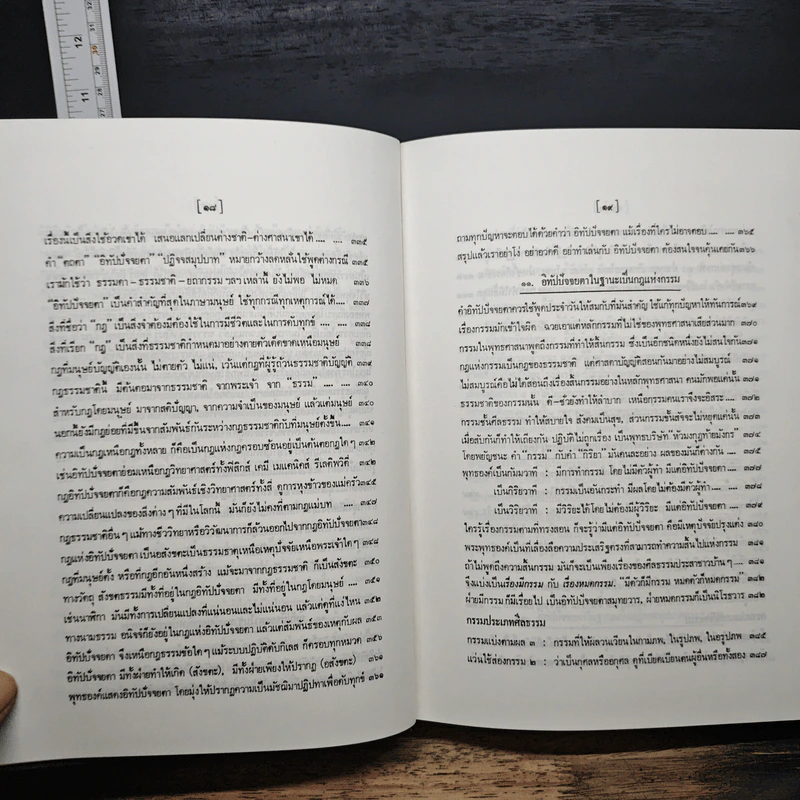 [๑๘]
เรื่องนี้เป็นสิ่งใช้อวดเขาได้ เสนอแลกเปลี่ยนต่างชาติ-ต่างศาสนาเขาได้ .... .... ๓๓๕
คำ "ตถตา" "อิทัปปัจจยตา" "ปฏิจจสมุปบาท" หมายกว้างลดหลั่นใช้พูดต่างกรณี
เรามักใช้ว่า ธรรมดา - ธรรมชาติ - ยถากรรม ฯลฯ เหล่านี้ ยังไม่พอ ไม่หมด ๓๓๖
"อิทัปปัจจยตา" เป็นคำสำคัญที่สุดในภาษามนุษย์ ใช้ทุกกรณีทุกเหตุการณ์ได้.... ๓๓๗
สิ่งที่ชื่อว่า "กฎ" เป็นสิ่งจำต้องมีต้องใช้ในการมีชีวิตและในการดับทุกข์ .... .... ๓๓๘
สิ่งที่เรียก "กฎ" เป็นสิ่งที่ธรรมชาติกำหนดมาอย่างตายตัวเด็ดขาดเหนือมนุษย์
กฎที่มนุษย์บัญญัติเองนั้น ไม่ตายตัว ไม่แน่, เว้นแต่กฎที่ผู้รู้ถ้วนธรรมชาติบัญญัติ ๓๓๙
กฎธรรมชาตินี้ มีต้นตอมาจากธรรมชาติ จากพระเจ้า จาก "ธรรม" .... .... ๓๔๐
สำหรับกฎโดยมนุษย์ มาจากสติปัญญา, จากความจำเป็นของมนุษย์ แล้วแต่มนุษย์
นอกนี้ยังมีกฎย่อยที่มีขึ้นจากสัมพันธ์กันระหว่างกฎธรรมชาติกับที่มนุษย์ตั้งขึ้น....
ความเป็นกฎเหนือกฎทั้งหลาย ก็คือเป็นกฎแห่งกฎครอบซ้อนอยู่เป็นต้นตอกฎใดๆ ๓๔๒
เช่นอิทัปปัจจยตาย่อมเหนือกฎวิทยาศาสตร์ทั้งฟิสิกส์ เคมี เมแคนิคส์ รีเลติพวิตี้
กฎอิทัปปัจจยตาก็คือกฎความสัมพันธ์เชิงวิทยาศาสตร์ทั้งสี่ ดูการหุงข้าวของแม่ครัว ๓๔๒
ความเปลี่ยนแปลงของสิ่งต่างๆ ที่มีในโลกนี้ มันก็ยังไม่คงที่ตามกฎแม่บท .... ๓๔๗
กฎธรรมชาติอื่นๆ แม้ทางชีววิทยาหรือวิวัฒนาการก็ล้วนออกไปจากกฎอิทัปปัจจยตา
กฎแห่งอิทัปปัจจยตา เป็นอสังขตะเป็นธรรมธาตุเหนือเหตุปัจจัยเหนือพระเจ้าใดๆ ๓๔๘
กฎที่มนุษย์ตั้ง หรือที่กฎอีกอันหนึ่งสร้าง แม้จะมาจากกฎธรรมชาติ ก็เป็นสังขตะ
ทางวัตถุ สังขตธรรมมีทั้งที่อยู่ในกฎอิทัปปัจจยตา มีทั้งที่อยู่ในกฎโดยมนุษย์ .... ๓๕๑
เช่นนาฬิกา มันมีทั้งการเปลี่ยนแปลงที่แน่นอนและไม่แน่นอน แล้วแต่ดูที่แง่ไหน ๓๕๒
ทางนามธรรม อนิจจังก็ยังอยู่ในกฎแห่งอิทัปปัจจยตา แล้วแต่สัมพันธ์ของเหตุกับผล
อิทัปปัจจยตา จึงเหนือกฎธรรมข้อใดๆ แม้ระบบปฏิบัติดับกิเลส ก็ครอบทุกหมวด ๓๕๖
อิทัปปัจจยตา มีทั้งฝ่ายทำให้เกิด (สังขตะ), มีทั้งฝ่ายเพียงให้ปรากฏ (อสังขตะ) ๓๖๑
พุทธองค์แสดงอิทัปปัจจยตา โดยมุ่งให้ปรากฏความเป็นมัชฌิมาปฏิปทาเพื่อดับทุกข์ ๓๖๑
[๑๙]
ถามทุกปัญหาจะตอบได้ด้วยคำว่า อิทัปปัจจยตา แม้เรื่องที่ใครไม่อาจตอบ .... .... ๓๖๕
สรุปแล้วเราอย่าโง่ อย่าอวดดี อย่าทำเล่นกับ อิทัปปัจจยตา ต้องสนใจจนคุ้นเคยกัน๓๖๖
๑๑. อิทัปปัจจยตาในฐานะเป็นกฎแห่งกรรม
คำอิทัปปัจจยตาควรใช้พูดประจำวันให้สมกับที่มันสำคัญ ใช้แก้ทุกปัญหาให้ทันการณ์๓๖๙
เรื่องกรรมมักเข้าใจผิด ฉวยเอาแต่หลักกรรมที่ไม่ใช่ของพุทธศาสนาเสียส่วนมาก ๓๗๐
กรรมในพุทธศาสนาพูดถึงกรรมที่ทำให้สิ้นกรรม ซึ่งเป็นอีกชนิดหนึ่งยังไม่สนใจกัน
กฎแห่งกรรมเป็นกฎของธรรมชาติ แต่ศาสดาบัญญัติสอนกันมาอย่างไม่สมบูรณ์ ๓๗๑
ไม่สมบูรณ์คือไม่ได้สอนถึงเรื่องสิ้นกรรมอย่างในหลักพุทธศาสนา คนมักพอแค่นั้น ๓๗๑
ธรรมชาติของกรรมนั้น ดี-ชั่วยังทำให้ลำบาก เหนือกรรมคนเราจึงจะอิสระ.... .... 
กรรมชั้นศีลธรรม ทำให้สบายใจ สังคมเป็นสุข, ส่วนกรรมชั้นสัจจะไม่หยุดแค่นั้น ๓๗๓
เมื่อสับกันก็ทำให้เถียงกัน ปฏิบัติไม่ถูกเรื่อง เป็นพุทธบริษัท "หัวมงกุฎท้ายมังกร" ๓๗๔
โดยพยัญชนะ คำ "กรรม" กับคำ "กิริยา" มันคนละอย่าง ผลของมันก็ต่างกัน .... ๓๗๕
พุทธองค์เป็นกัมมวาที : มีการทำกรรม โดยไม่มีตัวผู้ทำ มีแต่อิทัปปัจจยตา.... .... ๓๗๗
เป็นกิริยวาที : กรรมเป็นอันกระทำ มีผลโดยไม่ต้องมีตัวผู้ทำ.... .... ๓๗๘
เป็นวิริยวาที : มีวิริยะได้โดยไม่ต้องมีผู้วิริยะ มีแต่อิทัปปัจจยตา .... ๓๗๙
ใครรู้เรื่องกรรมตามที่ทรงสอน ก็จะรู้ว่ามีแต่อิทัปปัจจยตา คือมีเหตุปัจจัยปรุงแต่ง ๓๘๐
พระพุทธองค์เป็นที่เลื่องลือความประเสริฐตรงที่สามารถทำความสิ้นไปแห่งกรรม ๓๘๑
ถ้าไม่พูดถึงความสิ้นกรรม มันก็จะเป็นเพียงเรื่องของศีลธรรมประสาชาวบ้านๆ .... ๓๘๑
จึงแบ่งเป็นเรื่องมีกรรม กับ เรื่องหมดกรรม. "มีตัวก็มีกรรม หมดตัวก็หมดกรรม" ๓๘๒
ฝ่ายมีกรรม ก็มีเรื่อยไป เป็นอิทัปปัจจยตาสมุทยวาร, ฝ่ายหมดกรรมก็เป็นนิโรธวาร
กรรมประเภทศีลธรรม
กรรมแบ่งตามผล ๓ : กรรมที่ให้ผลวนเวียนในกามภพ, ในรูปภพ, ในอรูปภพ ๓๘๕
แว่นใช้ส่องกรรม ๒ : ว่าเป็นกุศลหรืออกุศล ดูที่เบียดเบียนตนผู้อื่นหรือทั้งสอง ๓๘๗